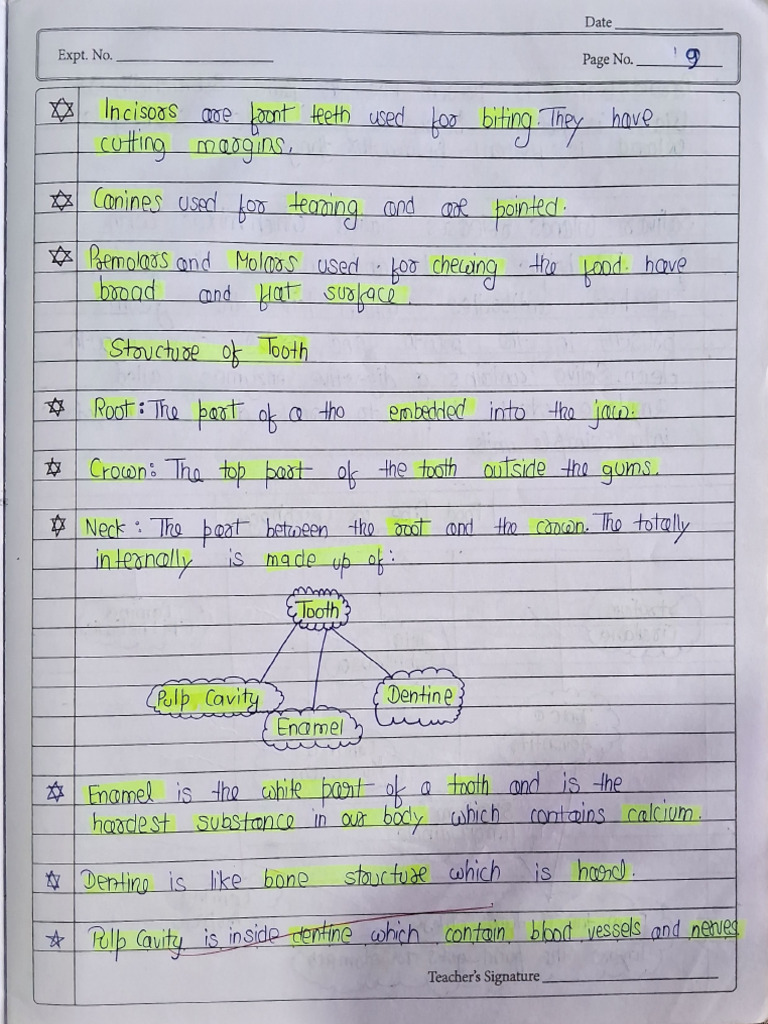 Date
Expt. No.
Page No. 9
Incisors are front teeth used for biting. They have
cutting margins.
Canines used for tearing and are pointed.
Premolars and Molars used for chewing the food. have
broad and flat surface.
Structure of Tooth
Root: The part of a tho embedded into the jaw.
Crown: The top part of the tooth outside the gums.
Neck: The part between the root and the crown. The totally
internally is made up of:
Tooth
Pulp Cavity
Enamel
Dentine
Enamel is the white part of a tooth and is the
hardest substance in our body which contains calcium.
Dentine is like bone structure which is hard.
Pulp Cavity is inside dentine which contain blood vessels and nerves
Teacher's Signature